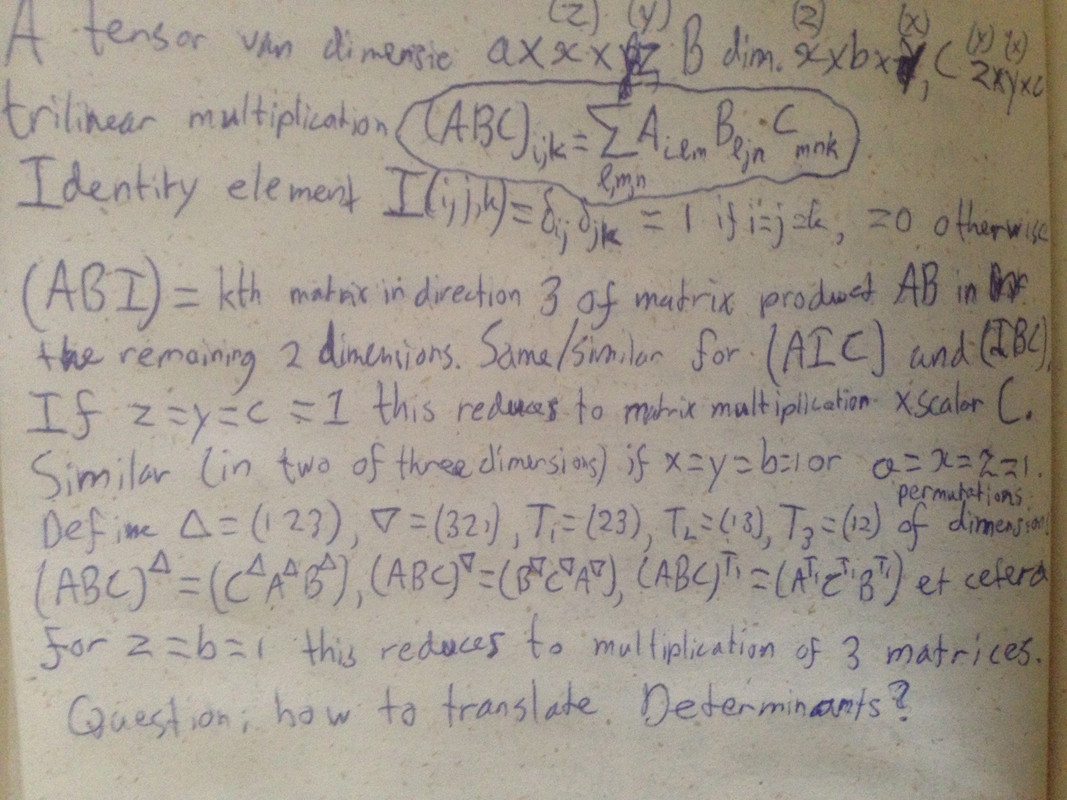 (z) (y) (z) (x) (y) (x)
A tensor van dimensie a×x× B dim. x×b× , C z×y×c
trilinear multiplication (ABC)ᵢⱼₖ = ∑ₗ,ₘ,ₙ Aᵢₗₘ Bₗⱼₙ Cₘₙₖ
Identity element I(i,j,k) = δᵢⱼ δⱼₖ = 1 if i=j=k, =0 otherwise
(ABI) = kth matrix in direction 3 of matrix product AB in
the remaining 2 dimensions. Same/similar for (AIC) and (IBC).
If z=y=c=1 this reduces to matrix multiplication × scalar C.
Similar (in two of three dimensions) if x=y=b=1 or a=x=z=1.
permutations
Define Δ=(123), ∇=(321), T₁=(23), T₂=(13), T₃=(12) of dimensions
(ABC)^Δ=(C^ΔA^ΔB^Δ), (ABC)^∇=(B^∇C^∇A^∇), (ABC)^T₁=(A^T₁C^T₁B^T₁) et cetera
for z=b=1 this reduces to multiplication of 3 matrices.
Question, how to translate Determinants?